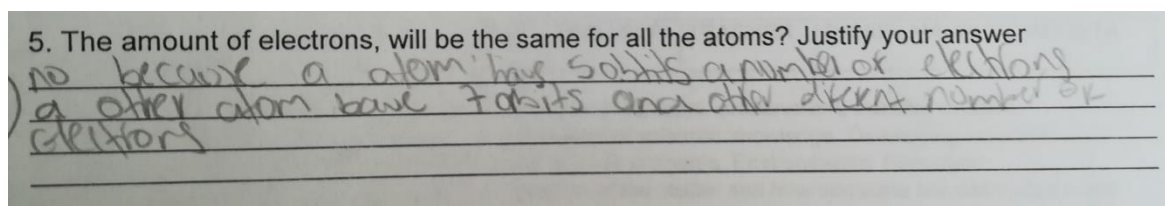 5. The amount of electrons, will be the same for all the atoms? Justify your answer
no because a atom have 5 orbits a number of electrons
a other atom have 7 orbits and other diferent number of
electrons